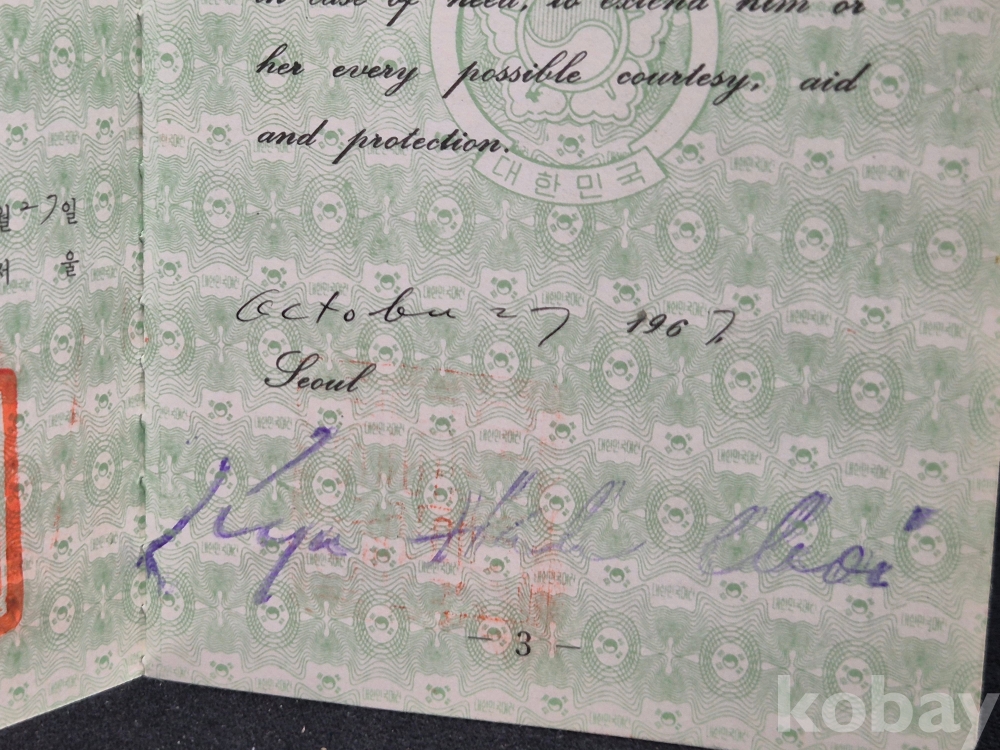 in case of need, to extend him or
her every possible courtesy, aid
and protection.
대한민국
월 27일
서 울
October 27 1967.
Seoul
Kyu Hah Choi
— 3 —
kobay